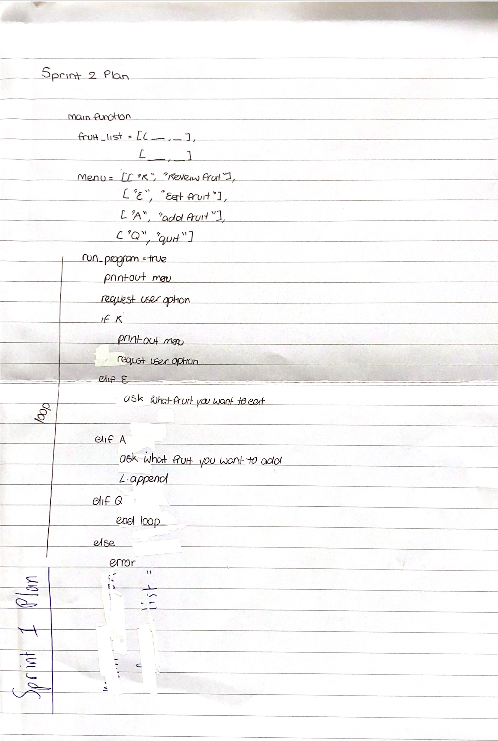 Sprint 2 Plan
main function
fruit_list = [[ __, __ ],
[ __, __ ]
Menu = [[ "R", "Review fruit"],
[ "E", "Eat fruit"],
[ "A", "add fruit"],
[ "Q", "quit"]
run_program = true
printout menu
request user option
if R
printout menu
request user option
elif E
ask what fruit you want to eat
loop
elif A
ask what fruit you want to add
L.append
elif Q
end loop
else
error
Sprint 1 Plan
list =